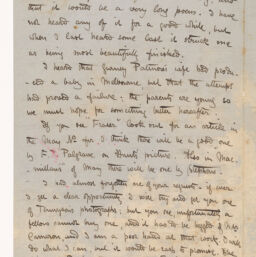 that it would be a very long poem. I have
not heard any of it for a good while, but
when I last heard some last it struck one
as being most beautifully finished.
I heard that Gurney Patmore's wife had produ-
-ced a baby in Melbourne but that the attempt
had proved a failure - the parents are young so
we must hope for something better hereafter.
If you see "Fraser" look out for an article in
the May No. for I think there will be a good one
by F. Palgrave on Hunt's picture. Also in Mac-
millans of May there will be one by Stephens.
I had almost forgotten one of your requests - if ever
I get a clear opportunity I will try and get you one
of Tennyson's photographs, but you see unfortunately a
fellow cannot buy one and it has to be begged of Mrs
Cameron and I am a poor hand at that work. I will
do what I can, but it would be rash to promise. The